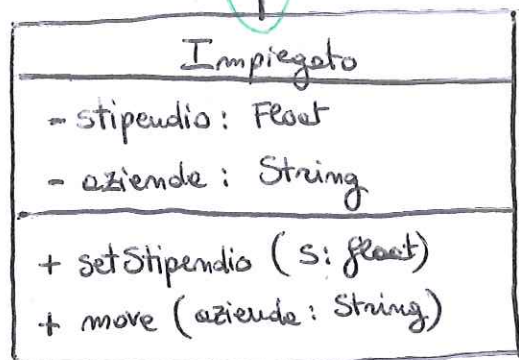 Impiegato
- stipendio: Float
- azienda: String
+ setStipendio (s: float)
+ move (azienda: String)